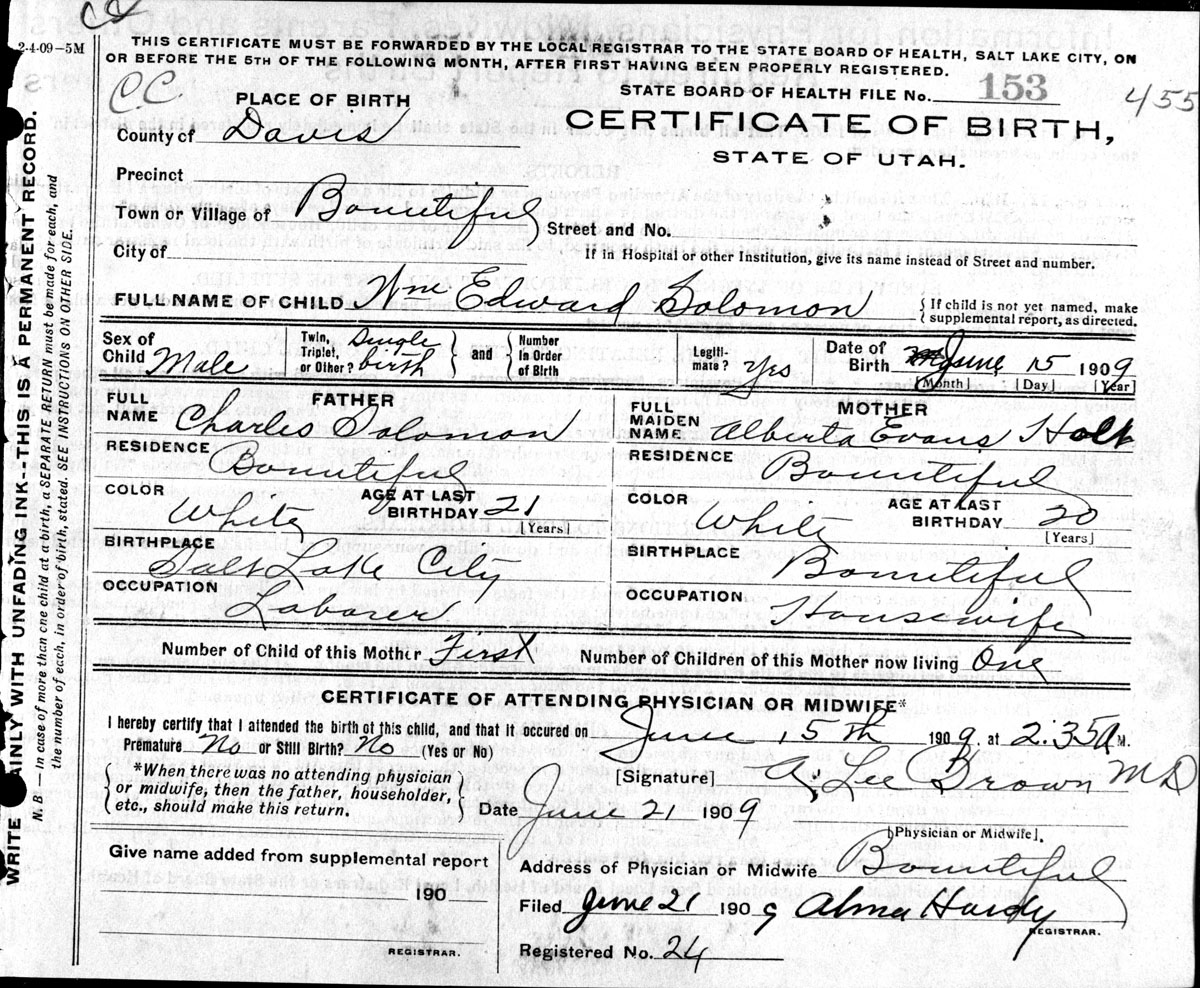 2-4-09-5M
THIS CERTIFICATE MUST BE FORWARDED BY THE LOCAL REGISTRAR TO THE STATE BOARD OF HEALTH, SALT LAKE CITY, ON
OR BEFORE THE 5TH OF THE FOLLOWING MONTH, AFTER FIRST HAVING BEEN PROPERLY REGISTERED.
STATE BOARD OF HEALTH FILE No. 153
455
CC
PLACE OF BIRTH
CERTIFICATE OF BIRTH,
STATE OF UTAH.
County of Davis
Precinct
Town or Village of Bountiful
Street and No.
City of
If in Hospital or other Institution, give its name instead of Street and number.
FULL NAME OF CHILD Wm Edward Solomon
{If child is not yet named, make
supplemental report, as directed.
Sex of Child Male
Twin, Triplet, or Other? Single birth
and
Number in Order of Birth
Legiti-mate? Yes
Date of Birth June 15 1909
[Month] [Day] [Year]
FATHER
FULL NAME Charles Solomon
RESIDENCE Bountiful
COLOR White
AGE AT LAST BIRTHDAY 21
[Years]
BIRTHPLACE Salt Lake City
OCCUPATION Laborer
MOTHER
FULL MAIDEN NAME Alberta Evans Holt
RESIDENCE Bountiful
COLOR White
AGE AT LAST BIRTHDAY 20
[Years]
BIRTHPLACE Bountiful
OCCUPATION Housewife
Number of Child of this Mother First Number of Children of this Mother now living One
CERTIFICATE OF ATTENDING PHYSICIAN OR MIDWIFE*
I hereby certify that I attended the birth of this child, and that it occured on June 15th 1909. at 2:35 A M.
Premature No or Still Birth? No (Yes or No)
*When there was no attending physician
or midwife, then the father, householder,
etc., should make this return.
[Signature] A. Lee Brown MD
Date June 21 1909
[Physician or Midwife].
Give name added from supplemental report
190
REGISTRAR.
Address of Physician or Midwife Bountiful
Filed June 21 1909 Alma Hardy
REGISTRAR.
Registered No. 24
WRITE AINLY WITH UNFADING INK--THIS IS A PERMANENT RECORD.
N. B — In case of more than one child at a birth, a SEPARATE RETURN must be made for each, and
the number of each, in order of birth, stated. SEE INSTRUCTIONS ON OTHER SIDE.